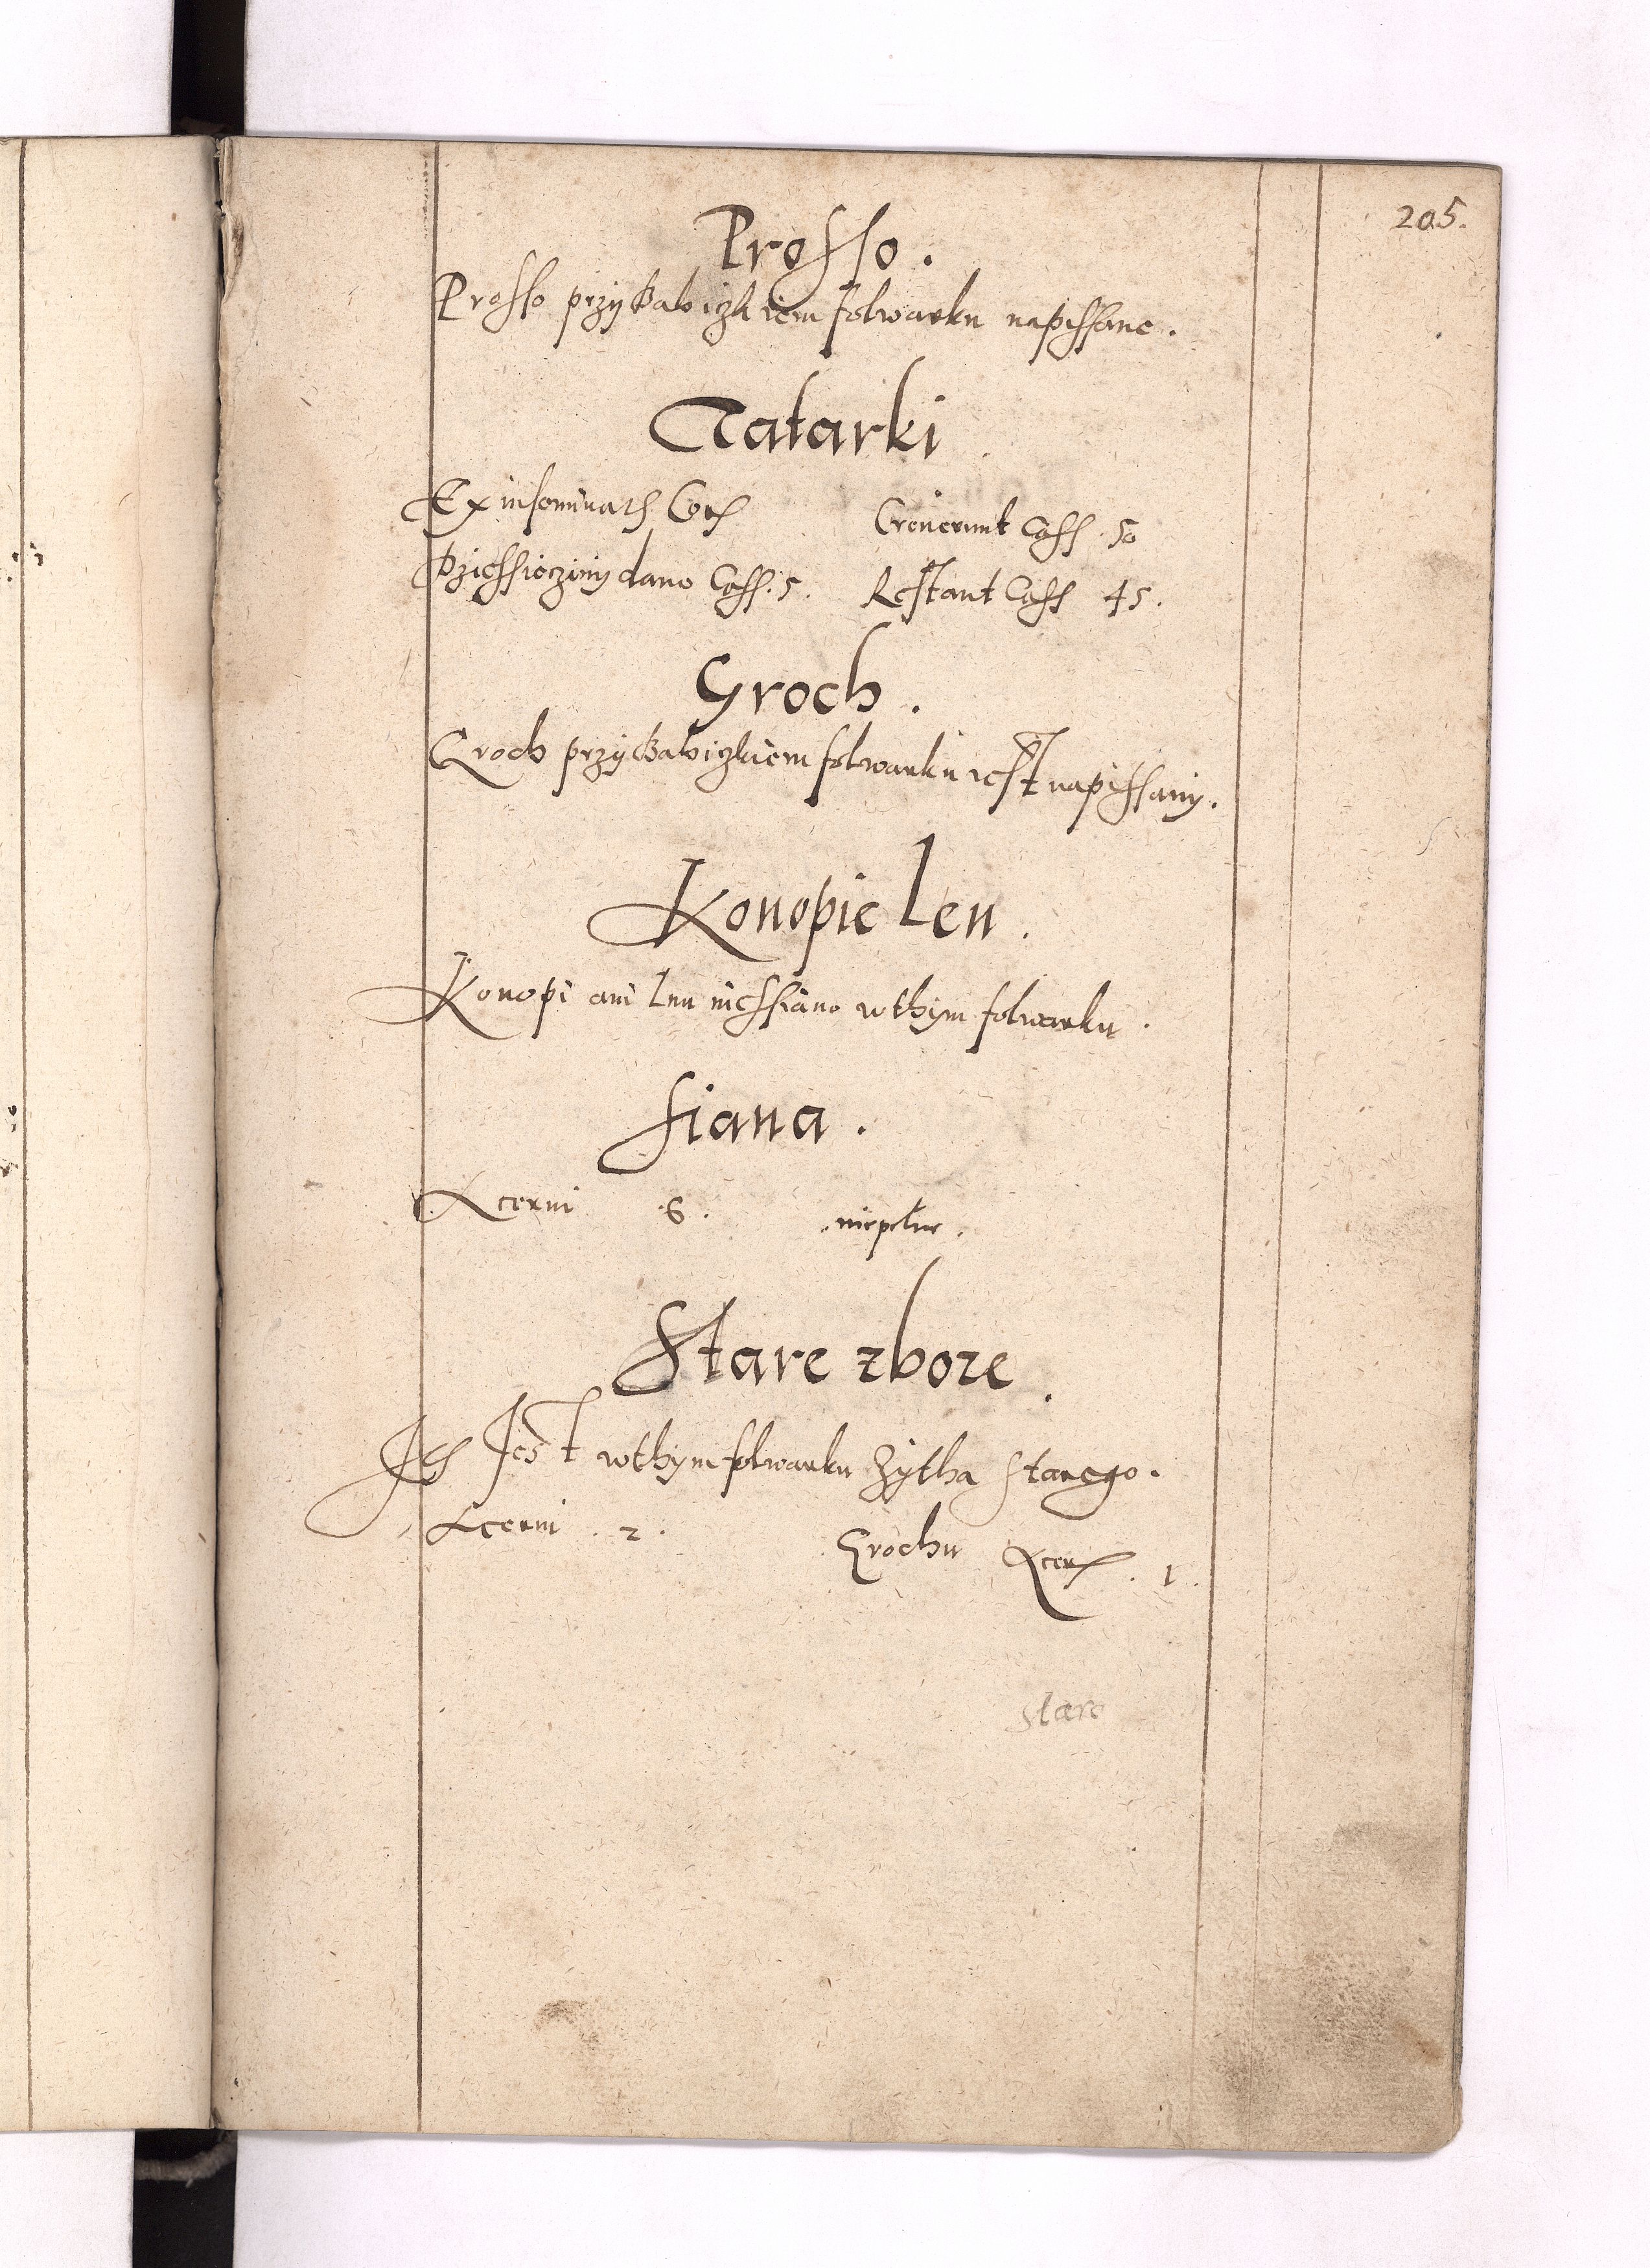 205.
Prosso.
Prosso przy Babiczkiem folwarku napissane.
Tatarki
Ex inseminatis Cor Creverunt Cass. 50
Dziessiecziny dano Cass. 5. Restant Cass 45.
Groch.
Groch przy Babiczkiem folwarku iest napissany.
Konopie Len.
Konopi ani lnu niessiano wthym folwarku.
Siana.
Acervi .6. niepelne.
Stare zboze.
Jest wthym folwarku Zytha starego.
Acervi .2. Grochu Acer. 1.
stare